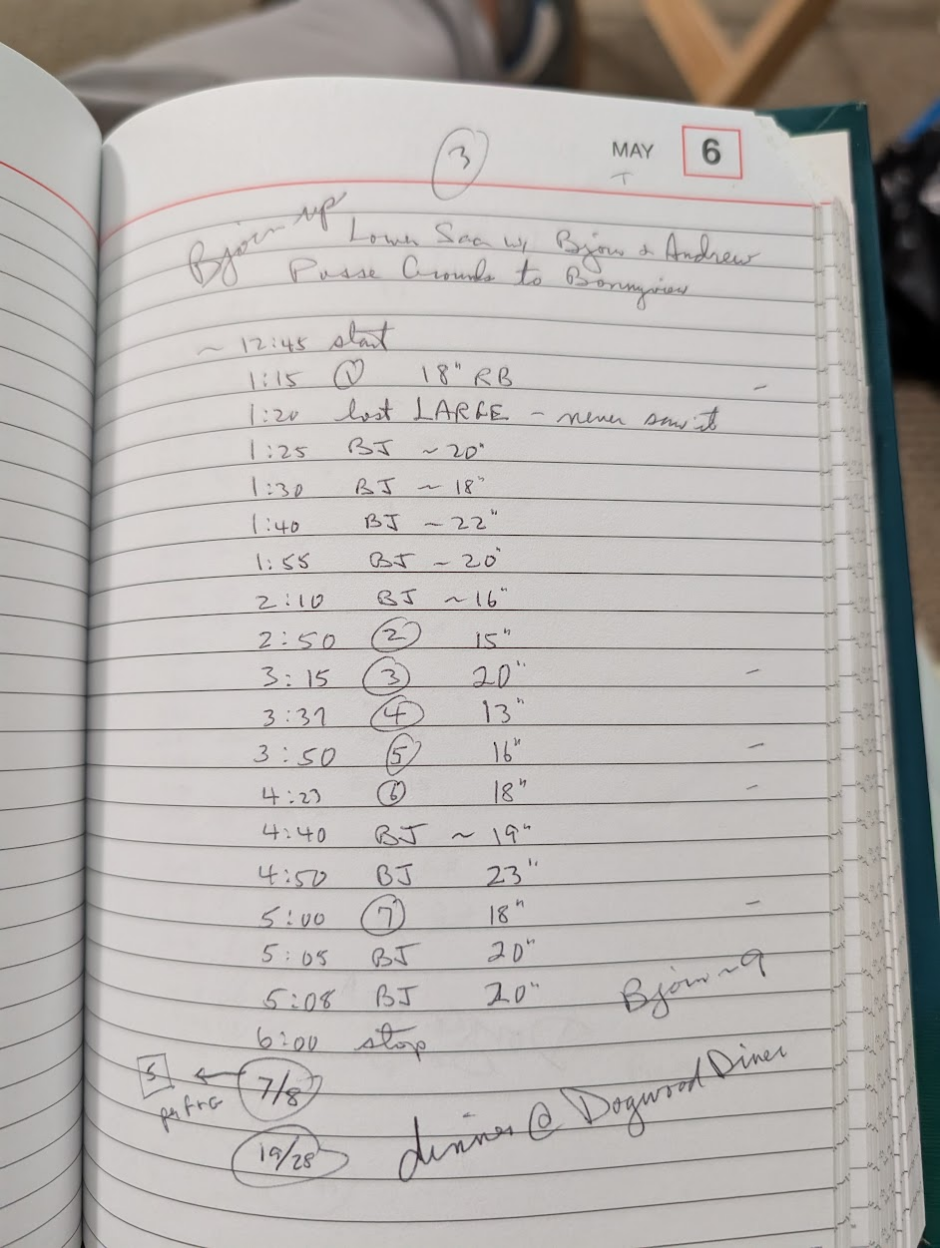 3
MAY 6
T
Bjorn up
Lower Sac w/ Bjorn & Andrew
Posse Grounds to Bonnyview
~ 12:45 start
1:15 1 18" RB -
1:20 lost LARGE - never saw it
1:25 BJ ~ 20"
1:30 BJ ~ 18"
1:40 BJ ~ 22"
1:55 BJ ~ 20"
2:10 BJ ~ 16"
2:50 2 15"
3:15 3 20" -
3:37 4 13"
3:50 5 16" -
4:23 6 18" -
4:40 BJ ~ 19"
4:50 BJ 23"
5:00 7 18" -
5:05 BJ 20"
5:08 BJ 20"
Bjorn ~ 9
6:00 stop
5 ← 7/8
19/28
dinner @ Dogwood Diner